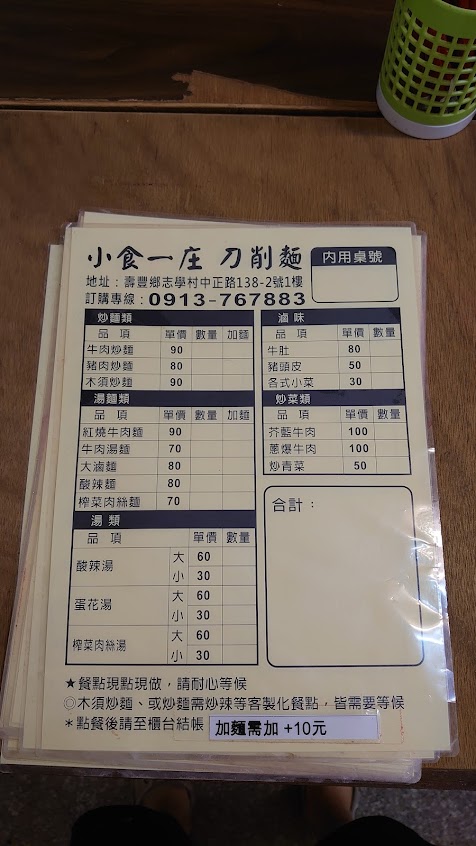 小食一庄 刀削麵
內用桌號
地址：壽豐鄉志學村中正路138-2號1樓
訂購專線：0913-767883
炒麵類
品 項 單價 數量 加麵
牛肉炒麵 90
豬肉炒麵 80
木須炒麵 90
湯麵類
品 項 單價 數量 加麵
紅燒牛肉麵 90
牛肉湯麵 70
大滷麵 80
酸辣麵 80
榨菜肉絲麵 70
湯 類
品 項 單價 數量
酸辣湯 大 60
小 30
蛋花湯 大 60
小 30
榨菜肉絲湯 大 60
小 30
滷 味
品 項 單價 數量
牛肚 80
豬頭皮 50
各式小菜 30
炒菜類
品 項 單價 數量
芥藍牛肉 100
蔥爆牛肉 100
炒青菜 50
合計：
★餐點現點現做，請耐心等候
◎木須炒麵、或炒麵需炒辣等客製化餐點，皆需要等候
＊點餐後請至櫃台結帳 加麵需加 +10元